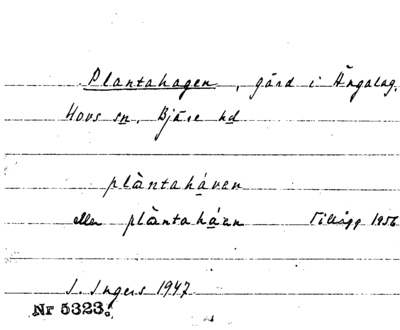 Plantahagen, gård i Ängalag,
Hovs sn. Bjäre hd
plàntaháven
eller plàntaháen Tillägg 1956
I. Ingers 1947
Nr 5323.